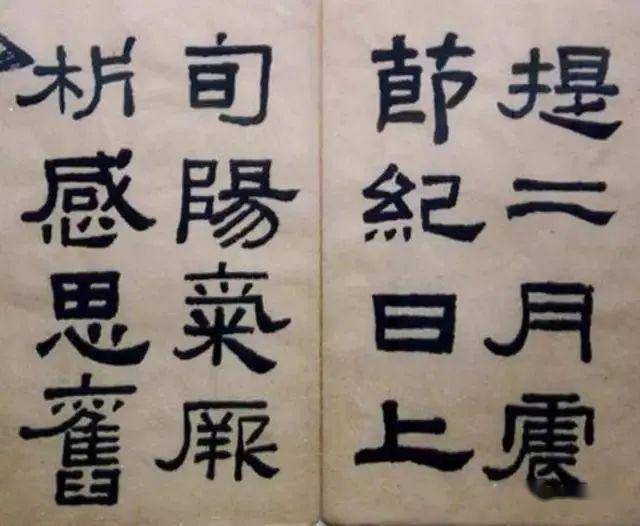 提二月震
節紀日上
旬陽氣厥
析感思舊